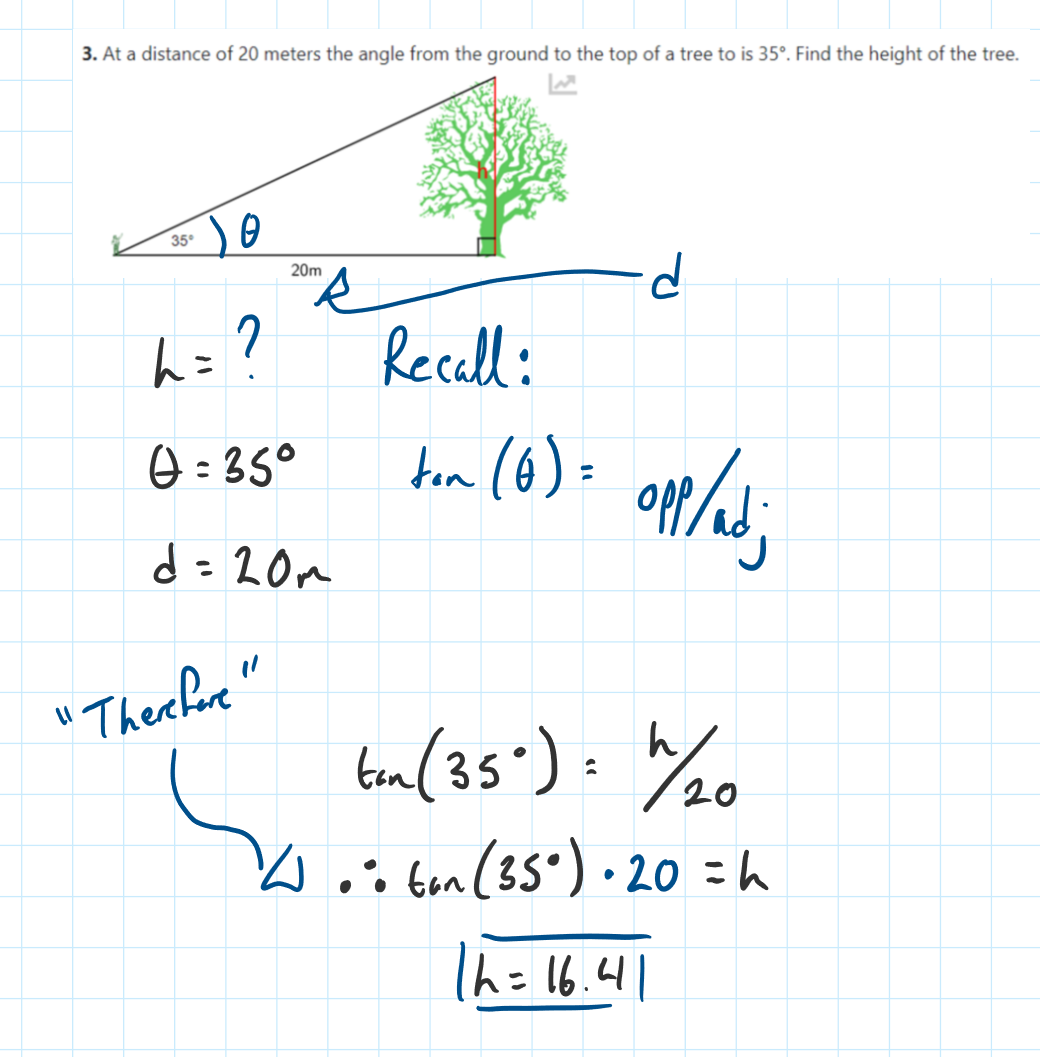 3. At a distance of 20 meters the angle from the ground to the top of a tree to is 35°. Find the height of the tree.
h
35°
θ
20m
d
h = ?
Recall:
θ = 35°
tan (θ) = opp/adj
d = 20m
"Therefore"
tan(35°) = h/20
∴ tan(35°) · 20 = h
h = 16.4